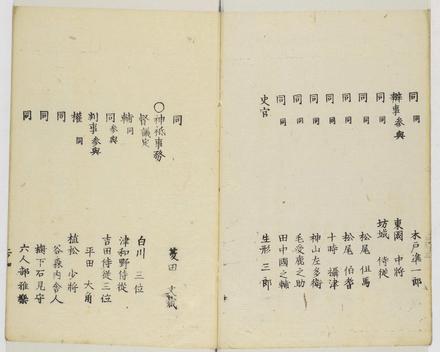 同 同 木戸準一郎
辦事参與 東園 中将
同 同 坊城 侍従
同 同 松尾 但馬
同 同 松尾 伯耆
同 同 十時 攝津
同 同 神山左多衛
同 同 毛受鹿之助
同 同 田中國之輔
史官 生形 三郎
同 菱田 文蔵
〇神祇事務
督議定 白川 三位
輔同 津和野侍従
同参與 吉田侍従三位
判事参與 平田 大角
權 同 植松 少将
同 谷森内舎人
同 樹下石見守
同 六人部雅樂